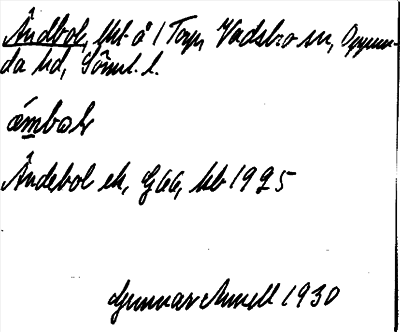 Åndbol, hht å 1 Torp, Vadsbro sn, Oppun-
da hd, Söml. l.
åmbolr
Åndebol ek, G 66, kb 1925
Gunnar Annell 1930